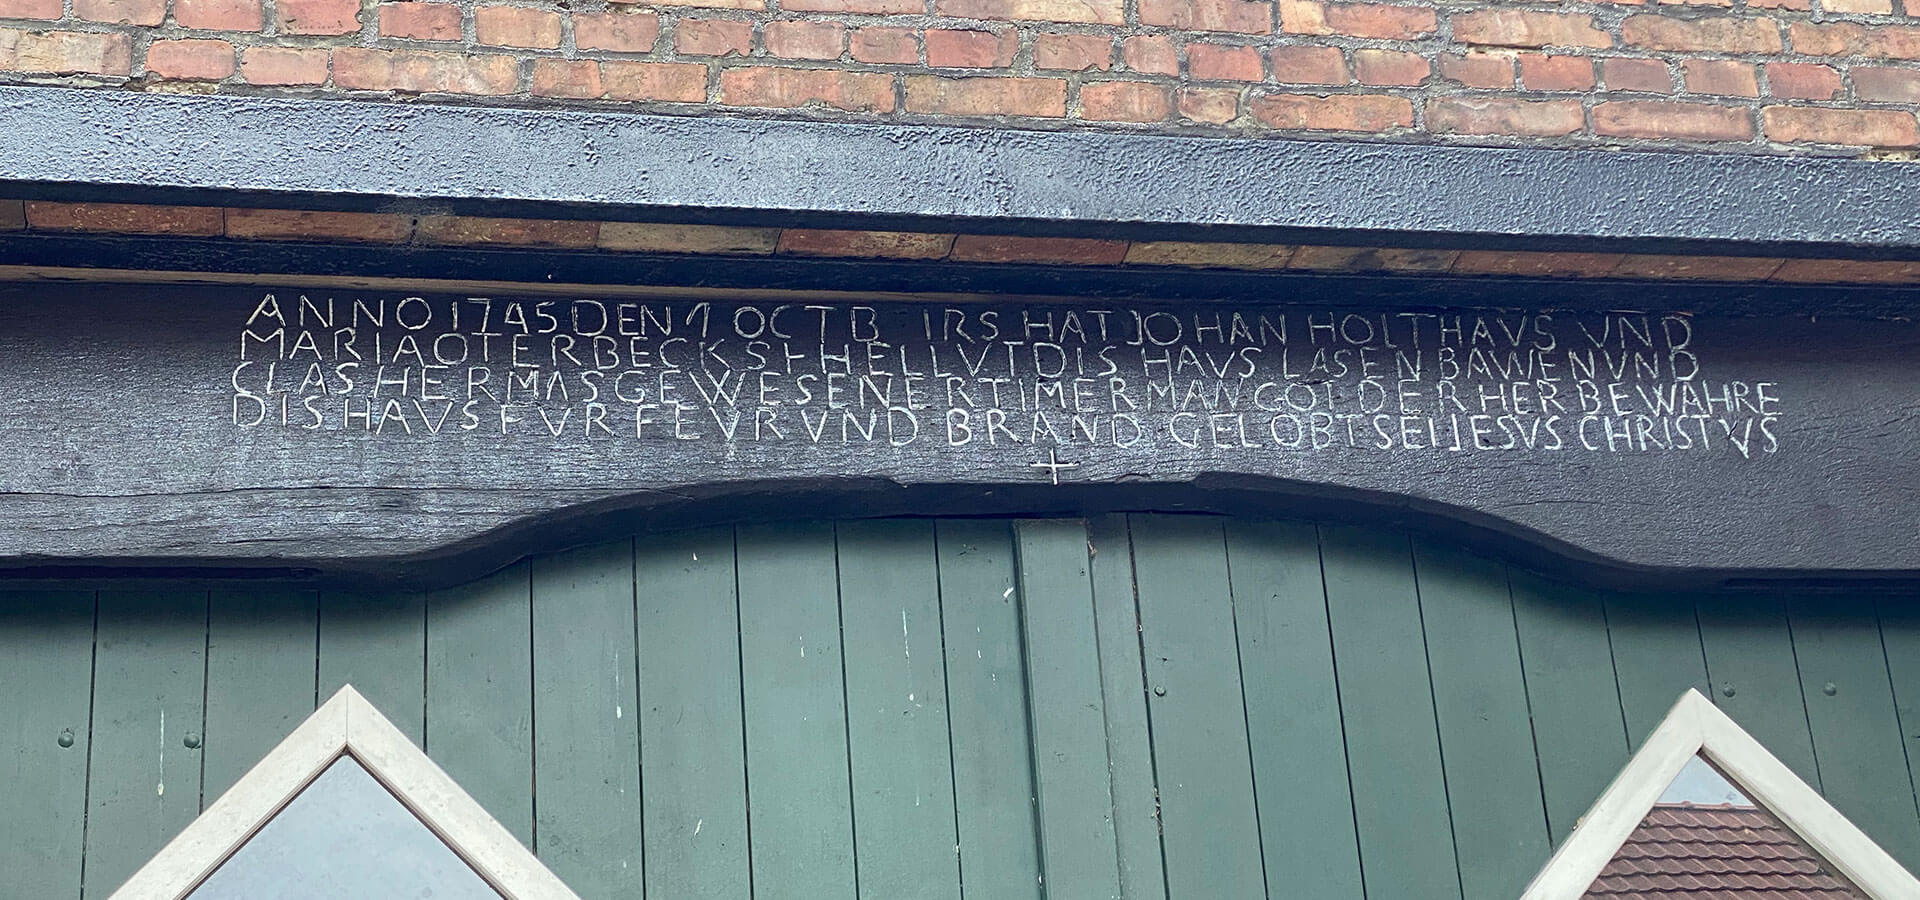 ANNO 1745 DEN 1 OCTB IRS HAT JOHAN HOLTHAVS VND
MARIA OTERBECKS HELLVT DIS HAVS LASEN BAWEN VND
CLAS HERMAS GEWESENER TIMERMAN GOT DER HER BEWAHRE
DIS HAVS FVR FEVR VND BRAND GELOBT SEI JESVS CHRISTVS
+